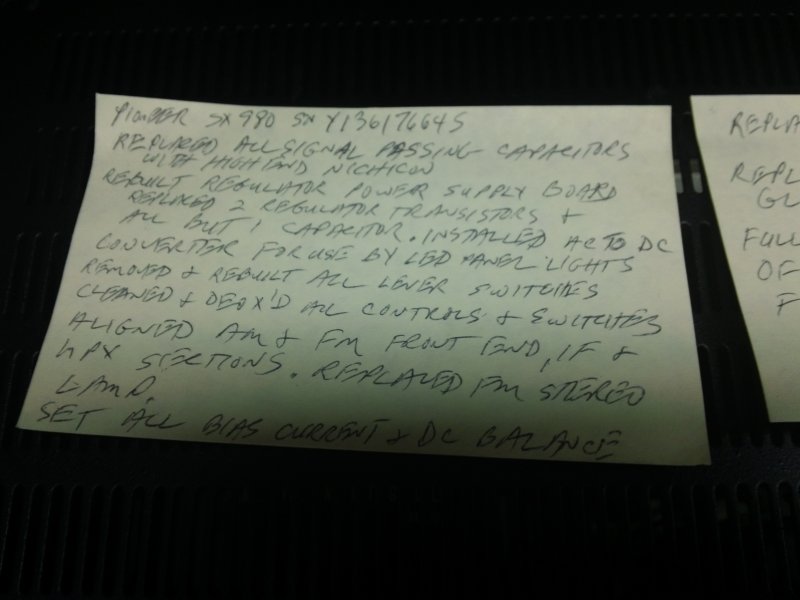 PIONEER SX 980 SN YI3617664S
REPLACED ALL SIGNAL PASSING CAPACITORS
WITH HIGH END NICHICON
REBUILT REGULATOR POWER SUPPLY BOARD
REPLACED 2 REGULATOR TRANSISTORS &
ALL BUT 1 CAPACITOR. INSTALLED AC TO DC
CONVERTER FOR USE BY LED PANEL LIGHTS
REMOVED & REBUILT ALL LEVER SWITCHES
CLEANED & DEOX'D ALL CONTROLS & SWITCHES
ALIGNED AM & FM FRONT END, IF &
MPX SECTIONS. REPLACED FM STEREO
LAMP.
SET ALL BIAS CURRENT & DC BALANCE
REPLA
REPL
GL
FULL
OF
F